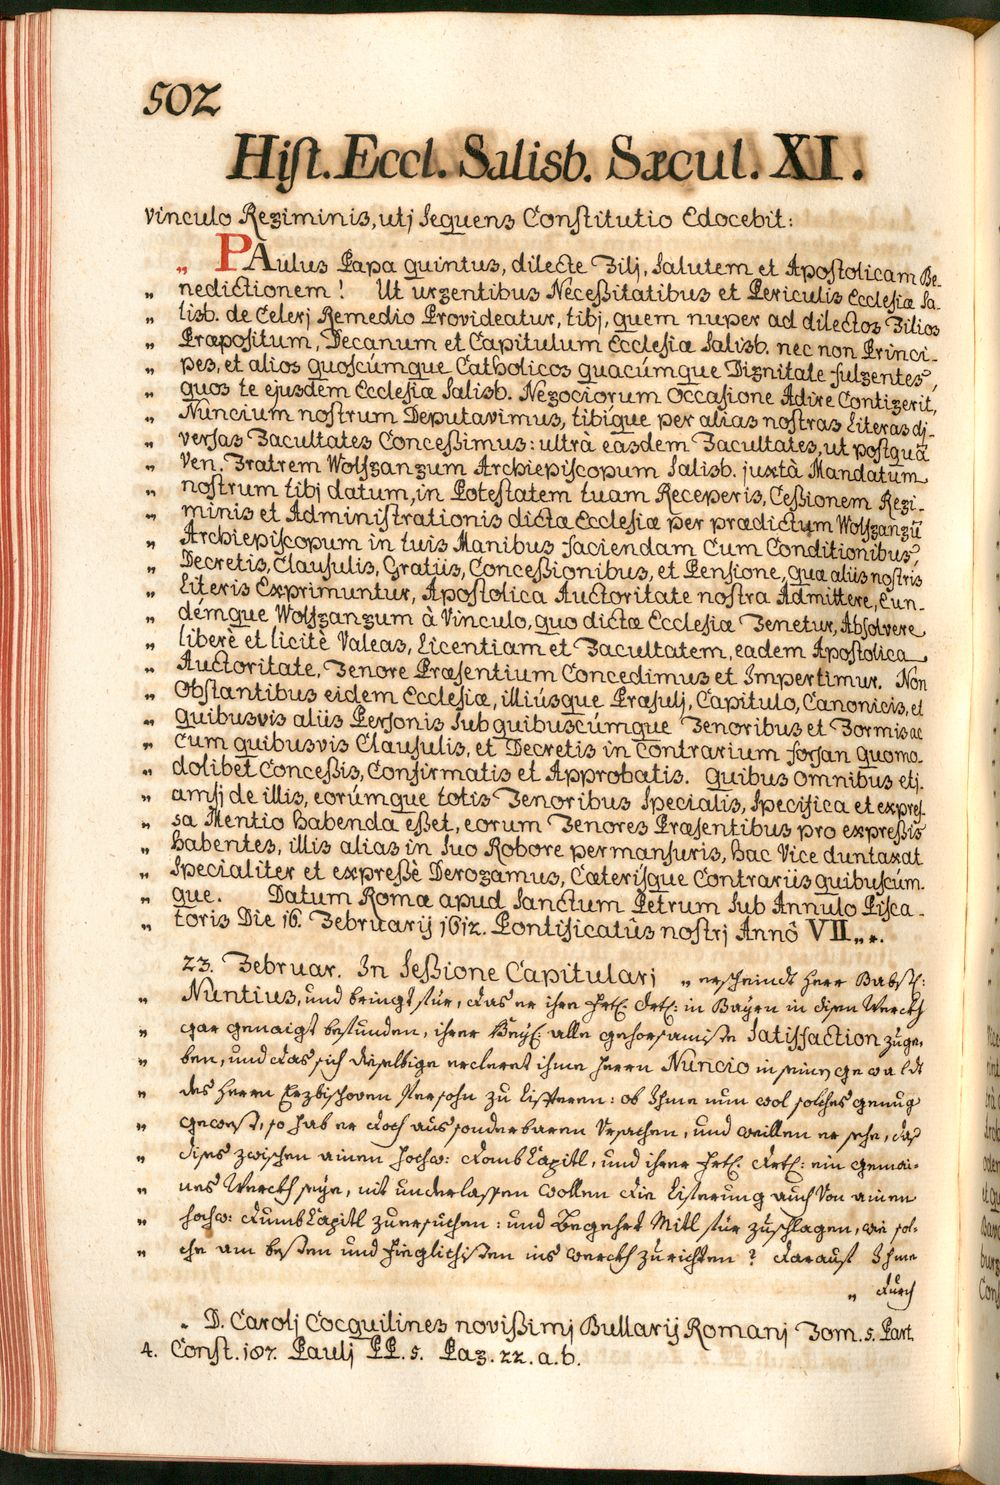 502
Hist. Eccl. Salisb. Sæcul. XI.
vinculo Regiminis, utj sequens Constitutio Edocebit:
„ PAulus Papa quintus, dilecte Filj, salutem et Apostolicam Be-
„ nedictionem! Ut urgentibus Neceßitatibus et Periculis Ecclesiæ Sa-
„ lisb. de Celerj Remedio Provideatur, tibj, quem nuper ad dilectos Filios
„ Præpositum, Decanum et Capitulum Ecclesiæ Salisb. nec non Princi-
„ pes, et alios quoscúmque Catholicos quacúmque Dignitate fulgentes,
„ quos te ejusdem Ecclesiæ Salisb. Negociorum Occasione Adire Contigerit,
„ Nuncium nostrum Deputavimus, tibíque per alias nostras Literas dj-
„ versas Facultates Conceßimus: ultrà easdem Facultates, ut postquã
„ Ven. Fratrem Wolfgangum Archiepiscopum Salisb. juxtà Mandatum
„ nostrum tibj datum, in Potestatem tuam Receperis, Ceßionem Regi-
„ minis et Administrationis dictæ Ecclesiæ per prædictum Wolfgangũ
„ Archiepiscopum in tuis Manibus faciendam Cum Conditionibus,
„ Decretis, Clausulis, Gratiis, Conceßionibus, et Pensione, quæ aliis nostris
„ Literis Exprimuntur, Apostolica Auctoritate nostra Admittere, Eun-
„ démque Wolfgangum à Vinculo, quo dictæ Ecclesiæ Tenetur, Absolvere
„ liberè et licitè Valeas, Licentiam et Facultatem, eadem Apostolica
„ Auctoritate, Tenore Præsentium Concedimus et Impertimur. Non
„ Obstantibus eidem Ecclesiæ, illiúsque Præsulj, Capitulo, Canonicis, et
„ quibusvis aliis Personis sub quibuscúmque Tenoribus et Formis ac
„ Cum quibusvis Clausulis, et Decretis in Contrarium forsan quomo-
„ dolibet Conceßis, Confirmatis et Approbatis. Quibus omnibus etj-
„ amsj de illis, eorúmque totis Tenoribus Specialis, Specifica et expres-
„ sa Mentio habenda eßet, eorum Tenores Præsentibus pro expreßis
„ habentes, illis alias in suo Robore permansuris, hac Vice duntaxat
„ Specialiter et expreßè Derogamus, Cæterisque Contrariis quibuscúm-
„ que. Datum Romæ apud Sanctum Petrum sub Annulo Pisca-
„ toris Die 16. Februarij 1612. Pontificatûs nostrj Annô VII.„.
23. Februar. In Seßione Capitularj „ erscheindt Herr Babstl:
„ Nuntius, und bringt für, das er ihre Frtl. Drtl: in Bayrn in disen Werckh
„ gar genaigt befunden, ihrer Heyl: alle gehorsamiste Satisfaction zuge-
„ ben, und das sich dieselbige ercleret ihme Herrn Nuncio in seinen gewaldt
„ des Herrn Erzbischoven Persohn zu Lifferen: ob Ihme nun wol solches genug
„ gewest, so hab er doch aus sonderbaren Ursachen, und weillen er sehe, das
„ dises zwischen ainen Hochw: Domb Capitl, und ihrer Frtl. Drtl: ein gemai-
„ nes Werckh seye, nit underlassen wollen die Liferung auch von ainen
„ Hochw: Dumb Capitl zuersuchen: und Begehrt Mitl für zuschlagen, wie sol-
„ che am besten und füeglichisten ins werckh zurichten? darauf Ihme
„ durch
„ D. Carolj Cocquilines novißimj Bullarij Romanj Tom. 5. Part.
4. Const. 187. Paulj PP. 5. Pag. 22. a. b.